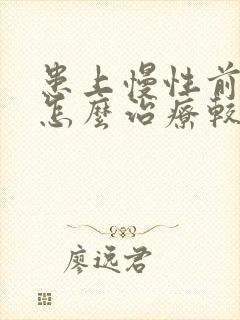 患上慢性前
怎麼治療較
廖远君